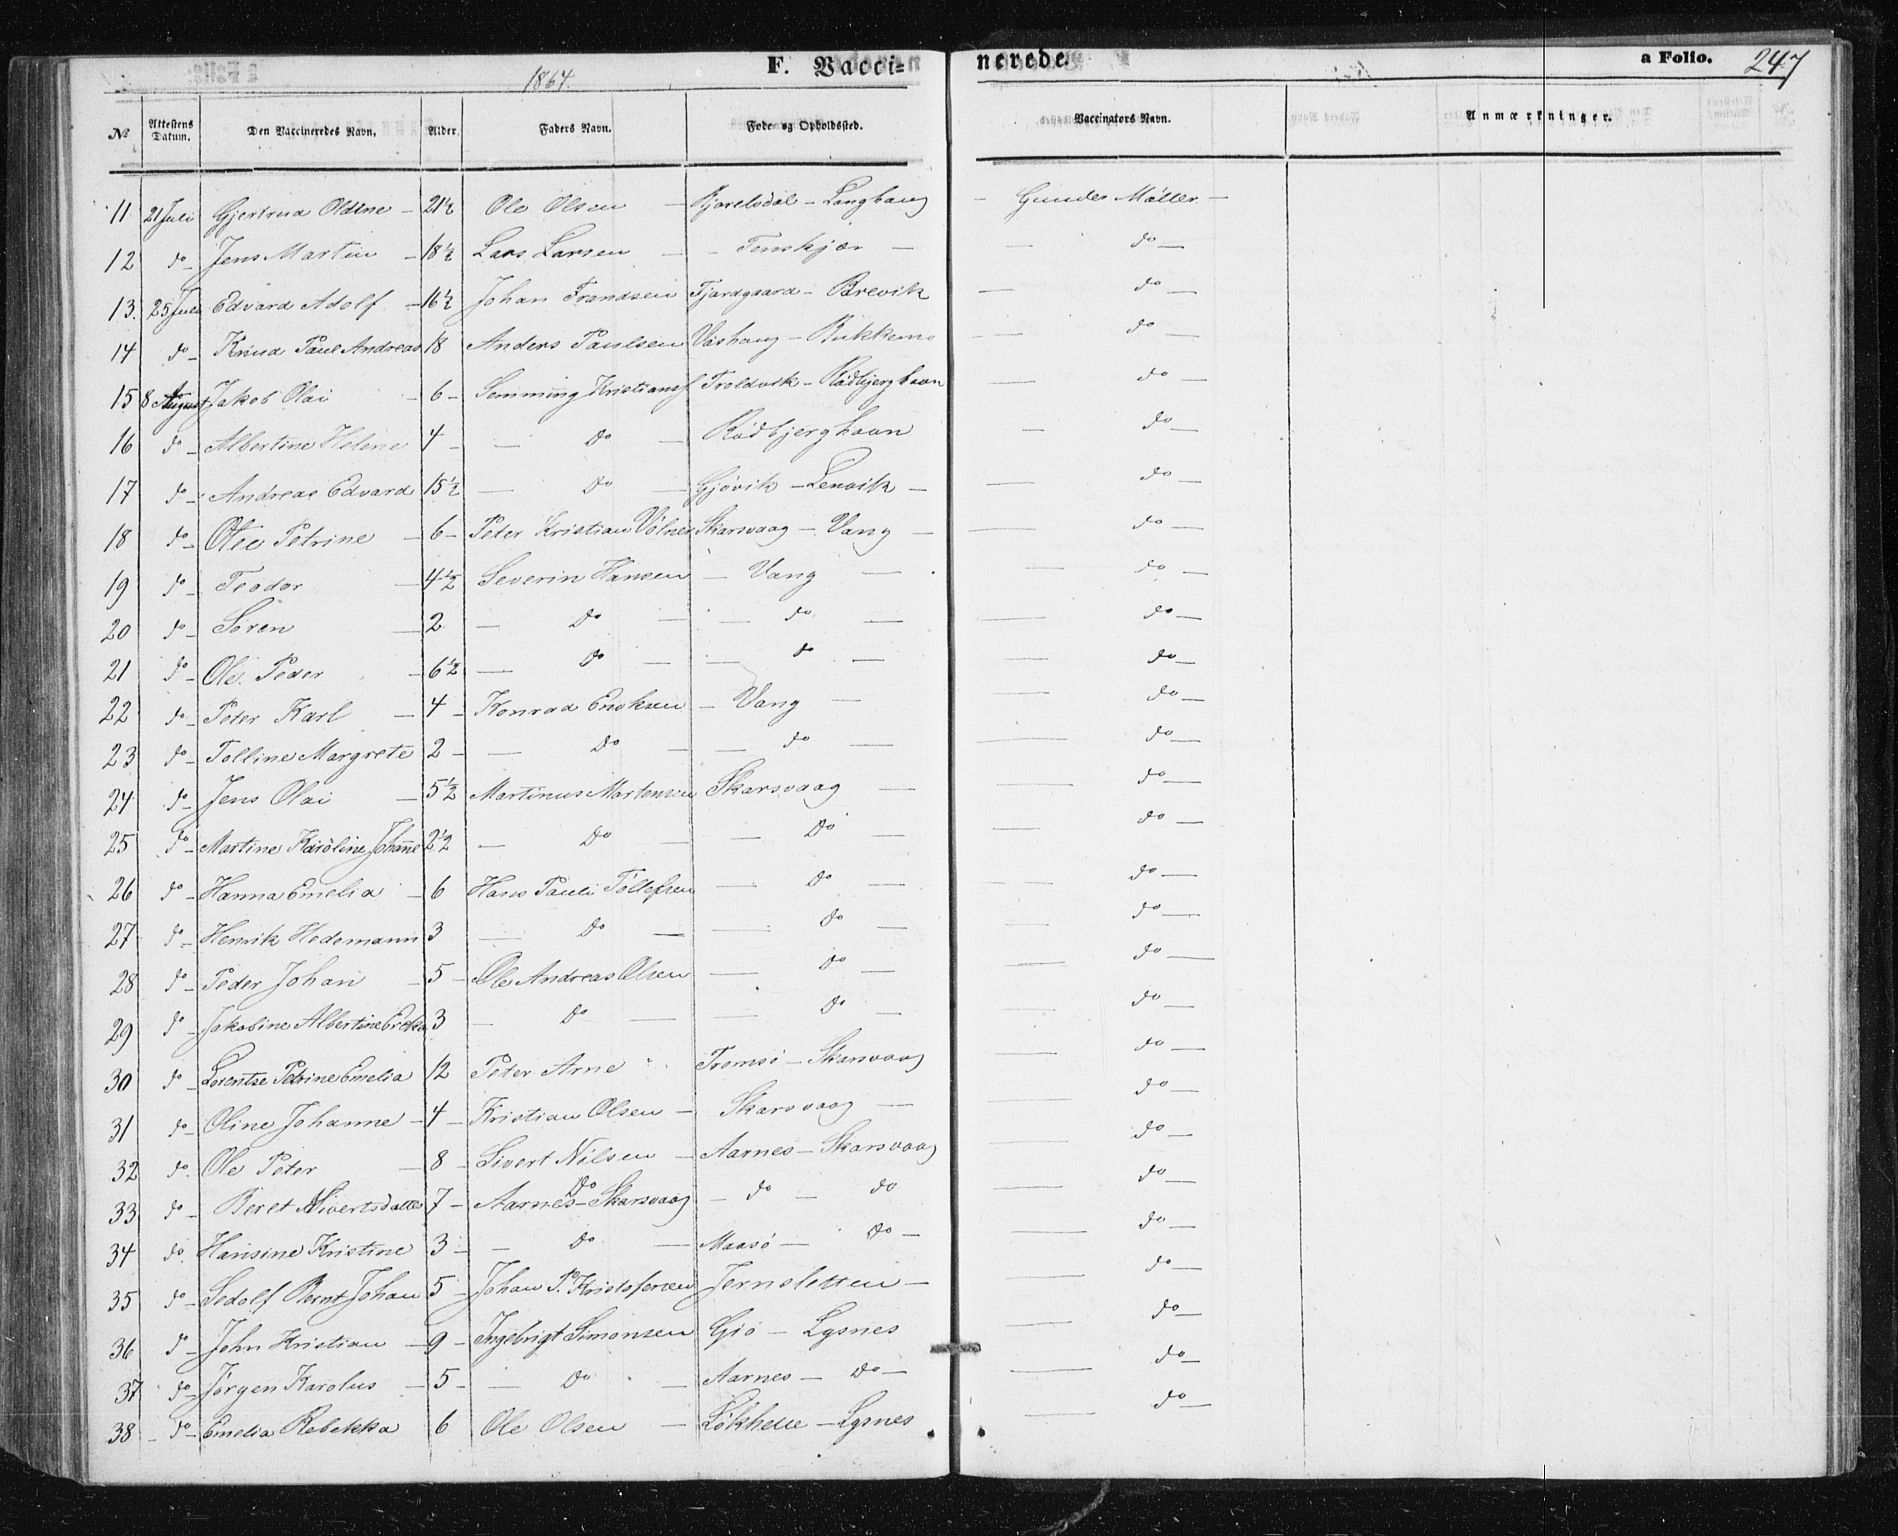 F. Vacci= nerede. a Folio. 247
1864.
№ Attestens Datum. Den Vaccineredes Navn. Alder. Faders Navn. Føde- og Opholdssted. Vaccinators Navn. Anmærkninger.
11 21 Juli Gjertrud Oldine - 21½ Ole Olsen - - Langhaug - Gunder Møller -
12 do - Jens Martin - 18½ Lars Larsen - - Tenskjær - - do -
13. 25 Juli Edvard Adolf - 16½ Johan Frandsen Fjordgaard - Brevik - do -
14 do - Knud Paul Andreas 18 Anders Paulsen Vashaug - Bukkemo - do -
15 8 August Jakob Olai - 6 - Semming Kristians. Troldvik - Rødbjerghavn - do -
16 do - Albertine Helene 4 - - do - Rødbjerghavn - do -
17 do - Andreas Edvard 15½ - do - Gjøvik - Lenvik - - do -
18 do - Olee Petrine - 6 - Peter Kristian Volner Skarsvaag - Vang - - do -
19 do - Teodor - 4½ Severin Hansen - Vang - - do -
20 do - Søren - 2 - do - - do - - do -
21 do - Ole Peder - 6½ - do - - do - - do -
22 do - Peter Karl - 4 - Konrad Enoksen - Vang - - do -
23 do - Tolline Margrete 2 - - do - - do - - do -
24 do - Jens Olai - 5½ Martinus Martensen Skarsvaag - - do -
25 do - Martine Karoline Johanne 2½ - do - - do - - do -
26 do - Hanna Emelia - 6 Hans Pauli Tollefsen - do - - do -
27 do - Henrik Hedemann 3 - do - - do - - do -
28 do - Peder Johan - 5 - Ole Andreas Olsen - do - - do -
29 do - Jakobine Albertine 3 - do - - do - - do -
30 do - Lorentse Petrine Emelia 12 Peter Arne Tromsø - Skarsvaag - do -
31 do - Oline Johanne - 4 - Kristian Olsen - Skarsvaag - - do -
32 do. Ole Peter - 8 - Sivert Nilsen - Aarnes - Skarsvaag - do -
33 do - Beret Sivertsdatter 7 - Aarnes - Skarsvaag do - do - do - do -
34 do. Hansine Kristine 3 - - do - Maasø - do - - do -
35 do - Sedolf Bernt Johan 5 - Johan P. Kristofersen Jernsletten - - do -
36 do - John Kristian - 9 - Ingebrigt Simonsen Giø - Lysnes - do -
37 do - Jørgen Karolus - 5 - - do - Aarnes - do - - do -
38 - do - Emelia Rebekka 6 Ole Olsen - Løkhelle - Lysnes - do -